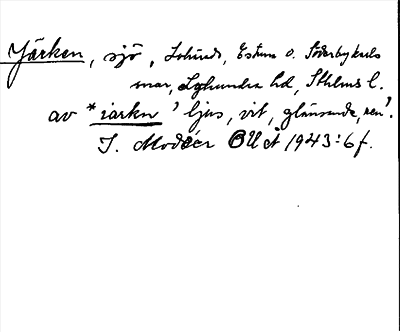 Järken, sjö, Lohärads, Estuna o. Söderbykarls
snar, Lyhundra hd, Sthlms l.
av *iarkn 'ljus, vit, glänsande, ren'.
I. Modéer OUÅ 1943:6f.